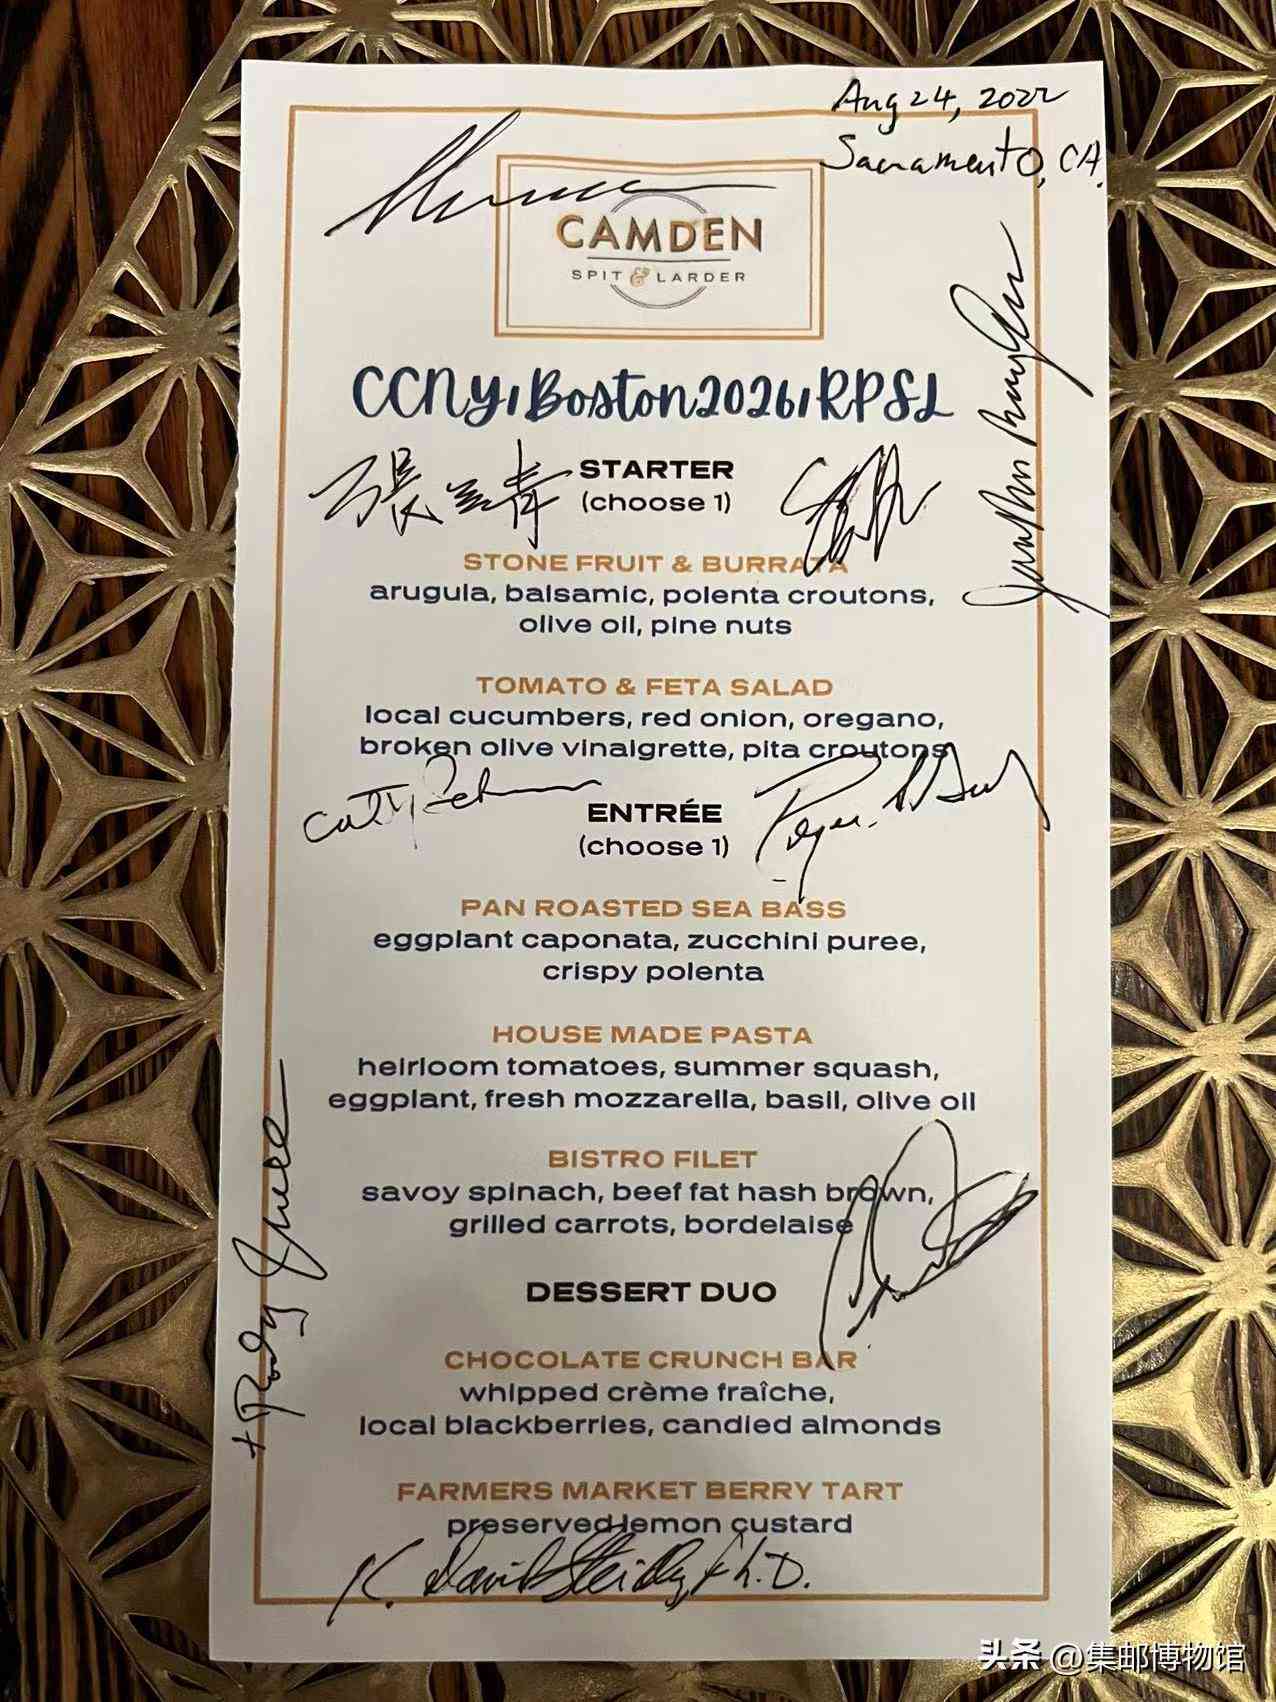 Aug 24, 2022
Sacramento, CA.
CAMDEN
SPIT & LARDER
CCNY, Boston2026, RPSL
STARTER
(choose 1)
STONE FRUIT & BURRATA
arugula, balsamic, polenta croutons,
olive oil, pine nuts
TOMATO & FETA SALAD
local cucumbers, red onion, oregano,
broken olive vinaigrette, pita croutons
ENTRÉE
(choose 1)
PAN ROASTED SEA BASS
eggplant caponata, zucchini puree,
crispy polenta
HOUSE MADE PASTA
heirloom tomatoes, summer squash,
eggplant, fresh mozzarella, basil, olive oil
BISTRO FILET
savoy spinach, beef fat hash brown,
grilled carrots, bordelaise
DESSERT DUO
CHOCOLATE CRUNCH BAR
whipped crème fraîche,
local blackberries, candied almonds
FARMERS MARKET BERRY TART
preserved lemon custard
K. David Steidley, Ph.D.
头条 @集邮博物馆